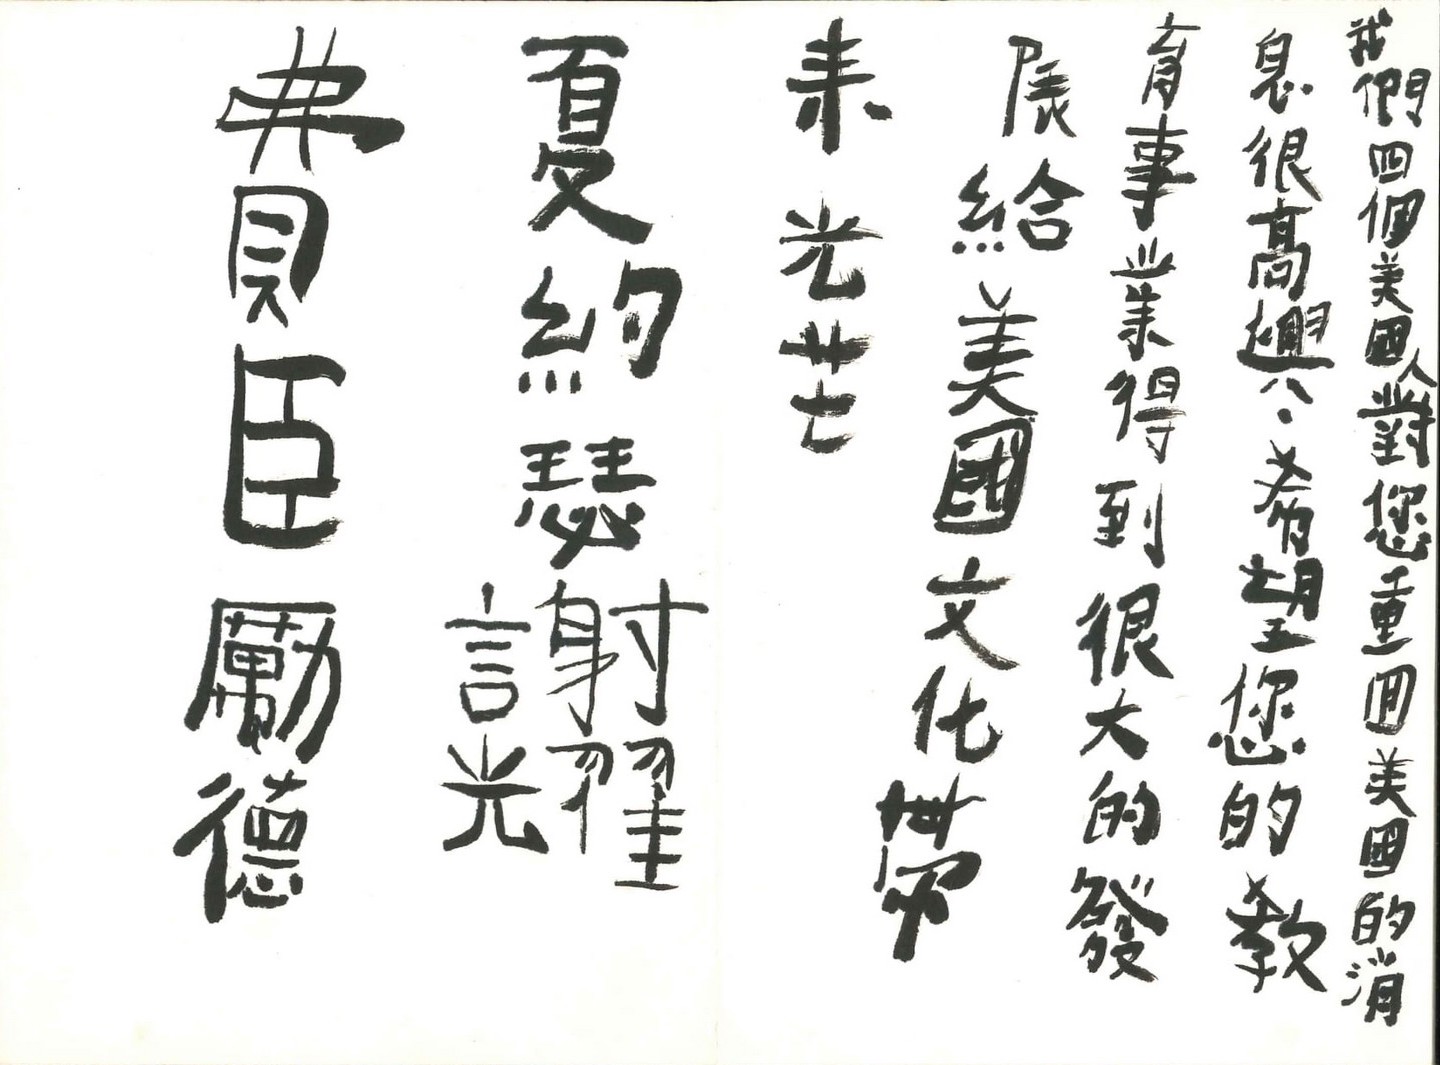 我們四個美國人對您重回美國的消
息很高興。希望您的教
育事業得到很大的發
展給美國文化帶
来光芒
夏約瑟謝耀
費臣勵德